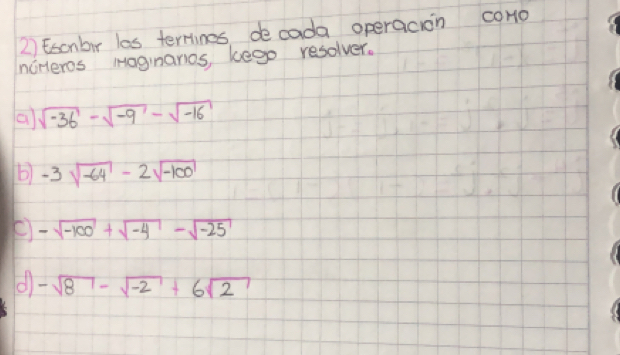 2) Escribir las terminos de cada operación como
números imaginarios, luego resolver.
a) √-36 - √-9 - √-16
b) -3 √-64 - 2√-100
c) -√-100 + √-4 - √-25
d) -√8 - √-2 + 6√2